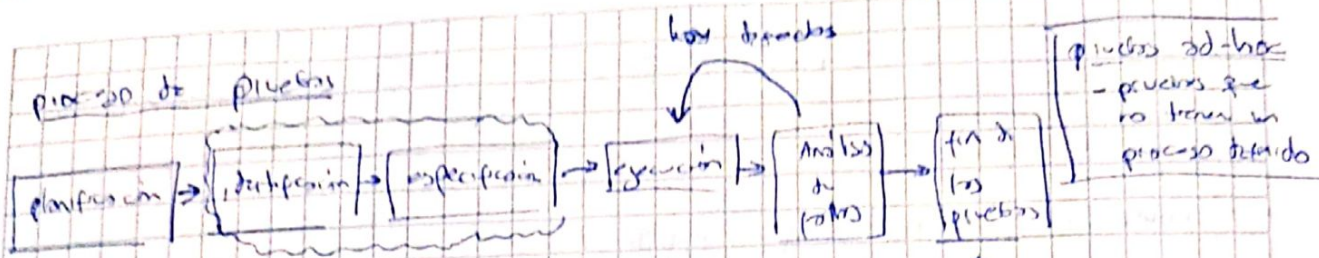 hay defectos
proceso de pruebas
planificación
identificación
especificación
ejecución
Análisis
de
fin de
las
pruebas
pruebas ad-hoc
- pruebas que
no tienen un
proceso definido